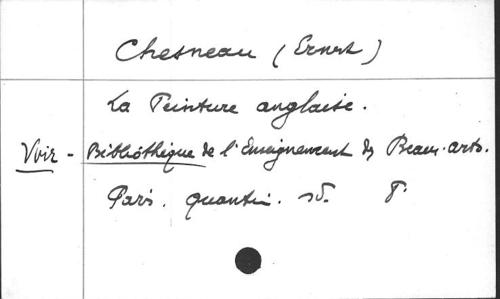 Chesneau (Ernest)
La Peinture anglaise.
Voir - Bibliothèque de l'Enseignement des Beaux-arts.
Paris. Quantin. sd. 8°